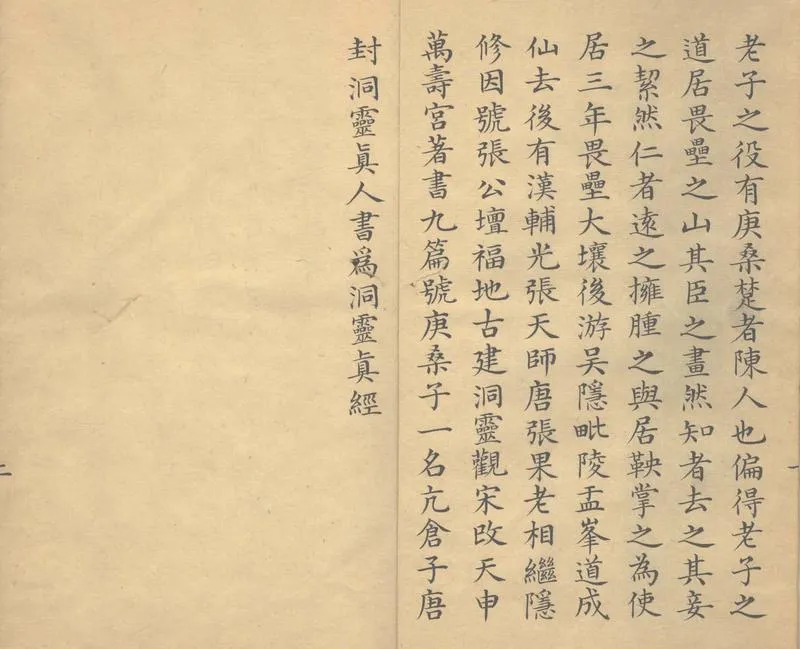 老子之役有庚桑楚者陳人也偏得老子之
道居畏壘之山其臣之畫然知者去之其妾
之絜然仁者遠之擁腫之與居鞅掌之為使
居三年畏壘大壤後游吴隱毗陵盂峯道成
仙去後有漢輔光張天師唐張果老相繼隱
修因號張公壇福地古建洞靈觀宋改天申
萬壽宮著書九篇號庚桑子一名亢倉子唐
封洞靈眞人書爲洞靈眞經